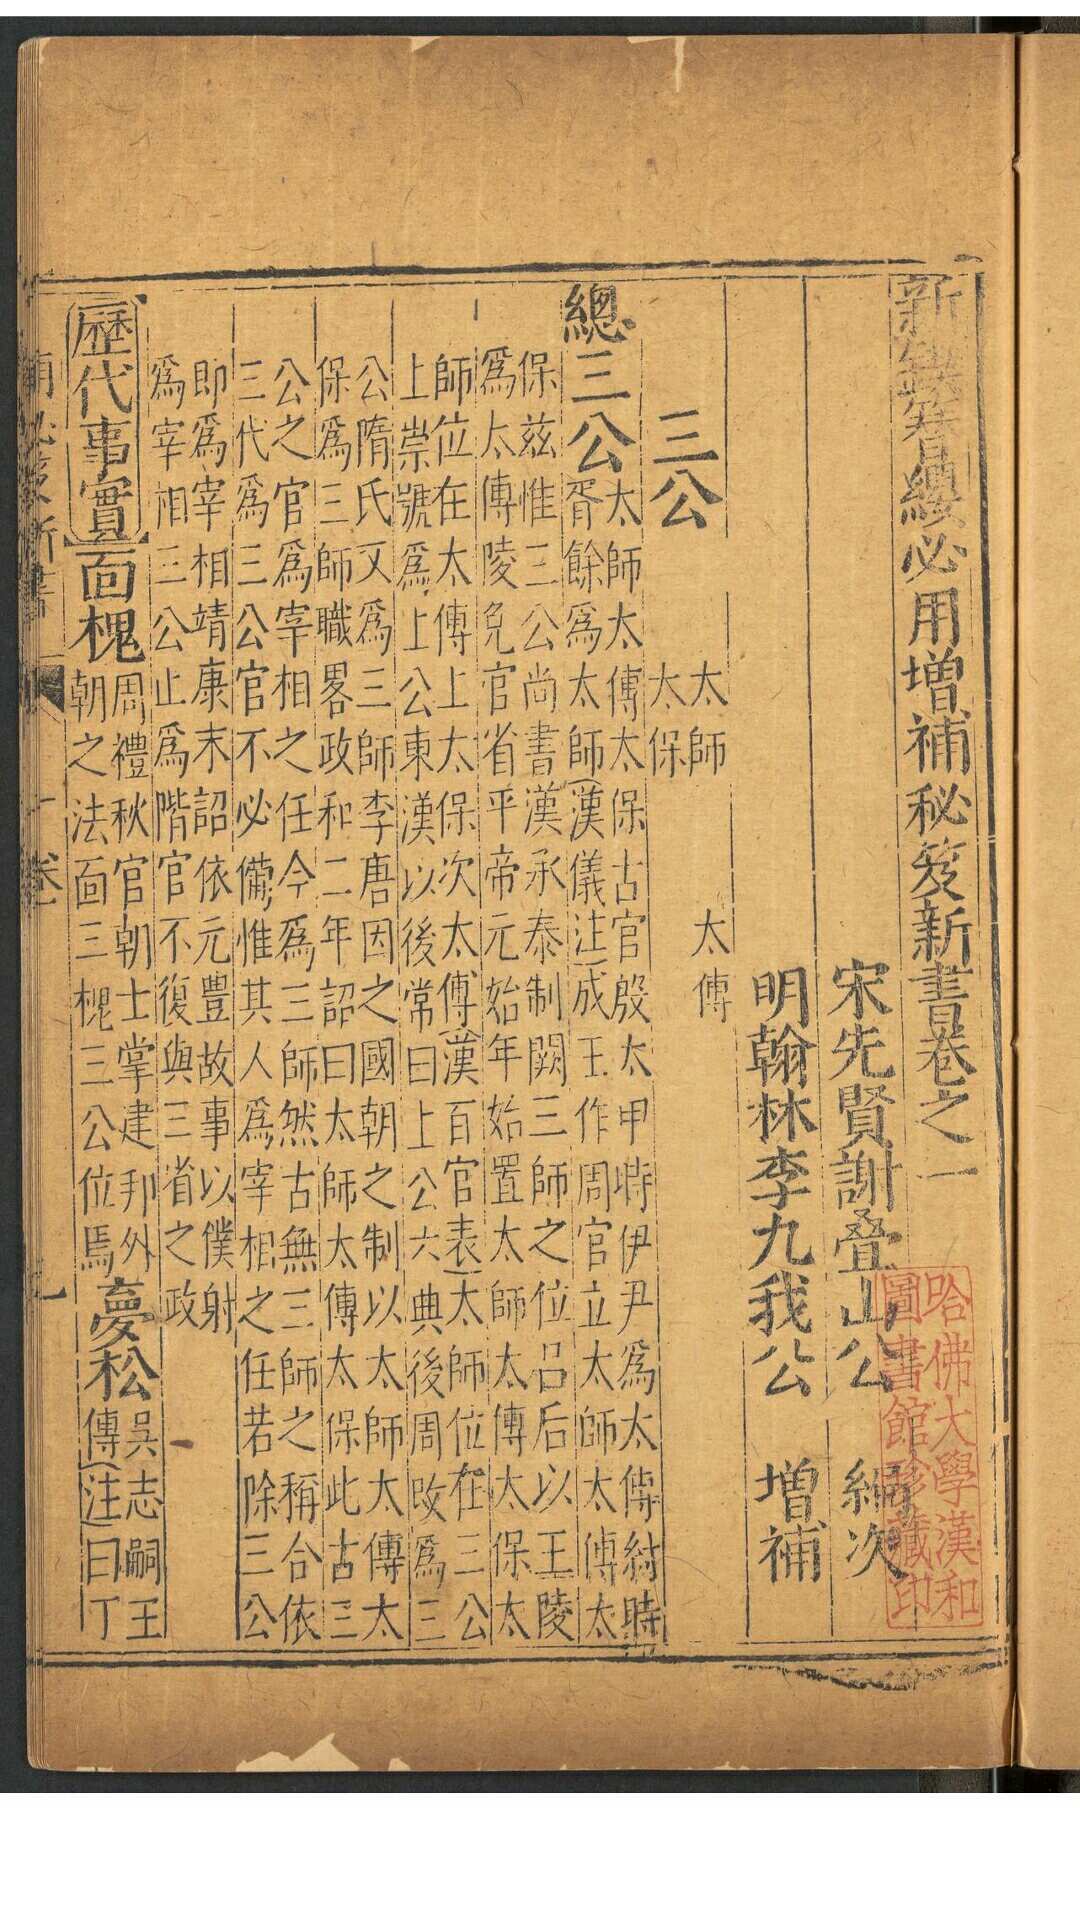 新鍥簪纓必用增補秘笈新書卷之一
宋先賢謝叠山公 編次
明翰林李九我公 增補
太師 太傅
三公 太保
總三公
太師太傅太保古官殷太甲時伊尹爲太傅紂時
胥餘爲太師漢儀注成王作周官立太師太傅太
保兹惟三公尚書漢承泰制闕三師之位吕后以王陵
爲太傅陵免官省平帝元始年始置太師太傅太保太
師位在太傅上太保次太傅漢百官表太師位在三公
上崇號爲上公東漢以後常曰上公六典後周改爲三
公隋氏又爲三師李唐因之國朝之制以太師太傅太
保爲三師職畧政和二年詔曰太師太傅太保此古三
公之官爲宰相之任今爲三師然古無三師之稱合依
三代爲三公官不必備惟其人爲宰相之任若除三公
即爲宰相靖康末詔依元豐故事以僕射
爲宰相三公止爲階官不復與三省之政
歷代事實 面槐
周禮秋官朝士掌建邦外
朝之法面三槐三公位焉
夢松
吳志嗣王
傳注曰丁
新書 卷一
哈佛大學漢和
圖書館珍藏印